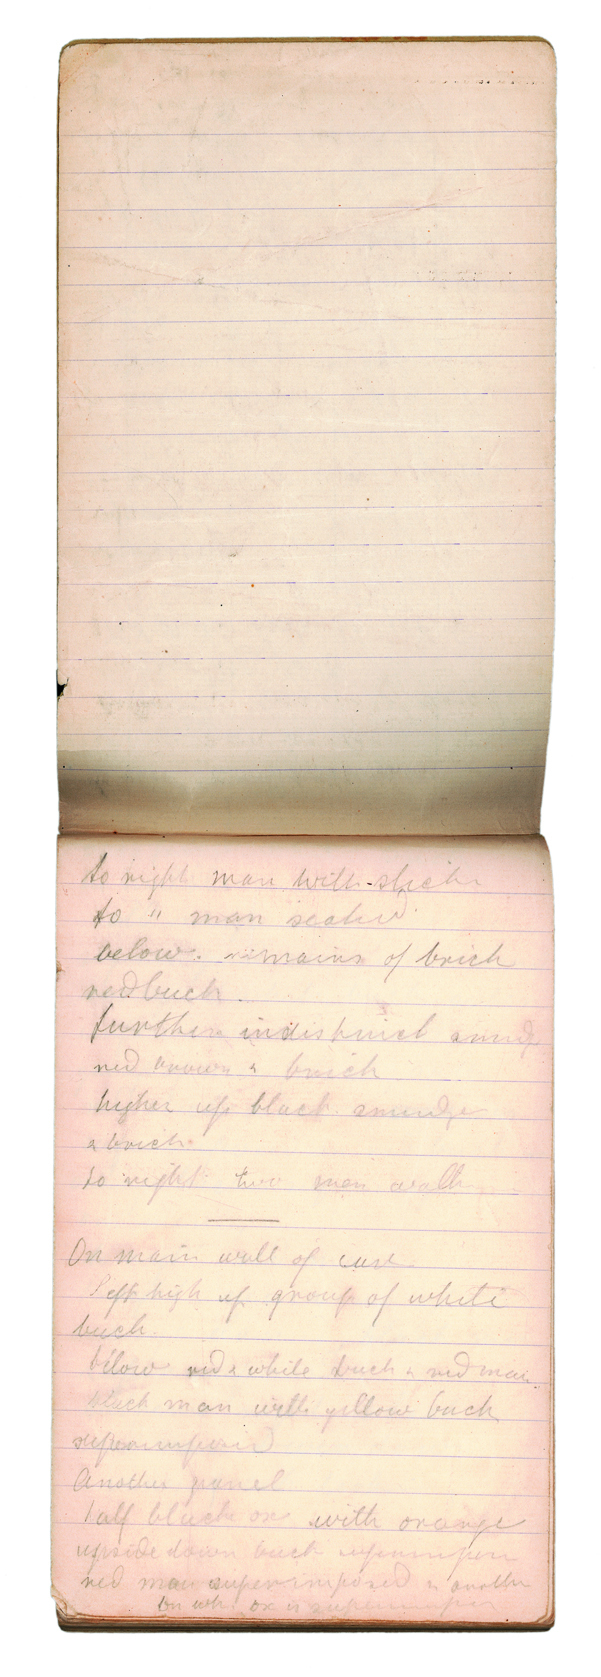 to right man with stick
to " man seated
below. remains of brick
red buck.
further indistinct smudg
red brown & brick
higher up black smudge
& brick
to right two man walk
On main wall of cave
Left high up group of white
buck.
below red & white buck & red man
black man with yellow back
superimposed
Another panel
half black ox with orange
upside down buck superimpose
red man superimposed & another
on wh. ox is superimpose